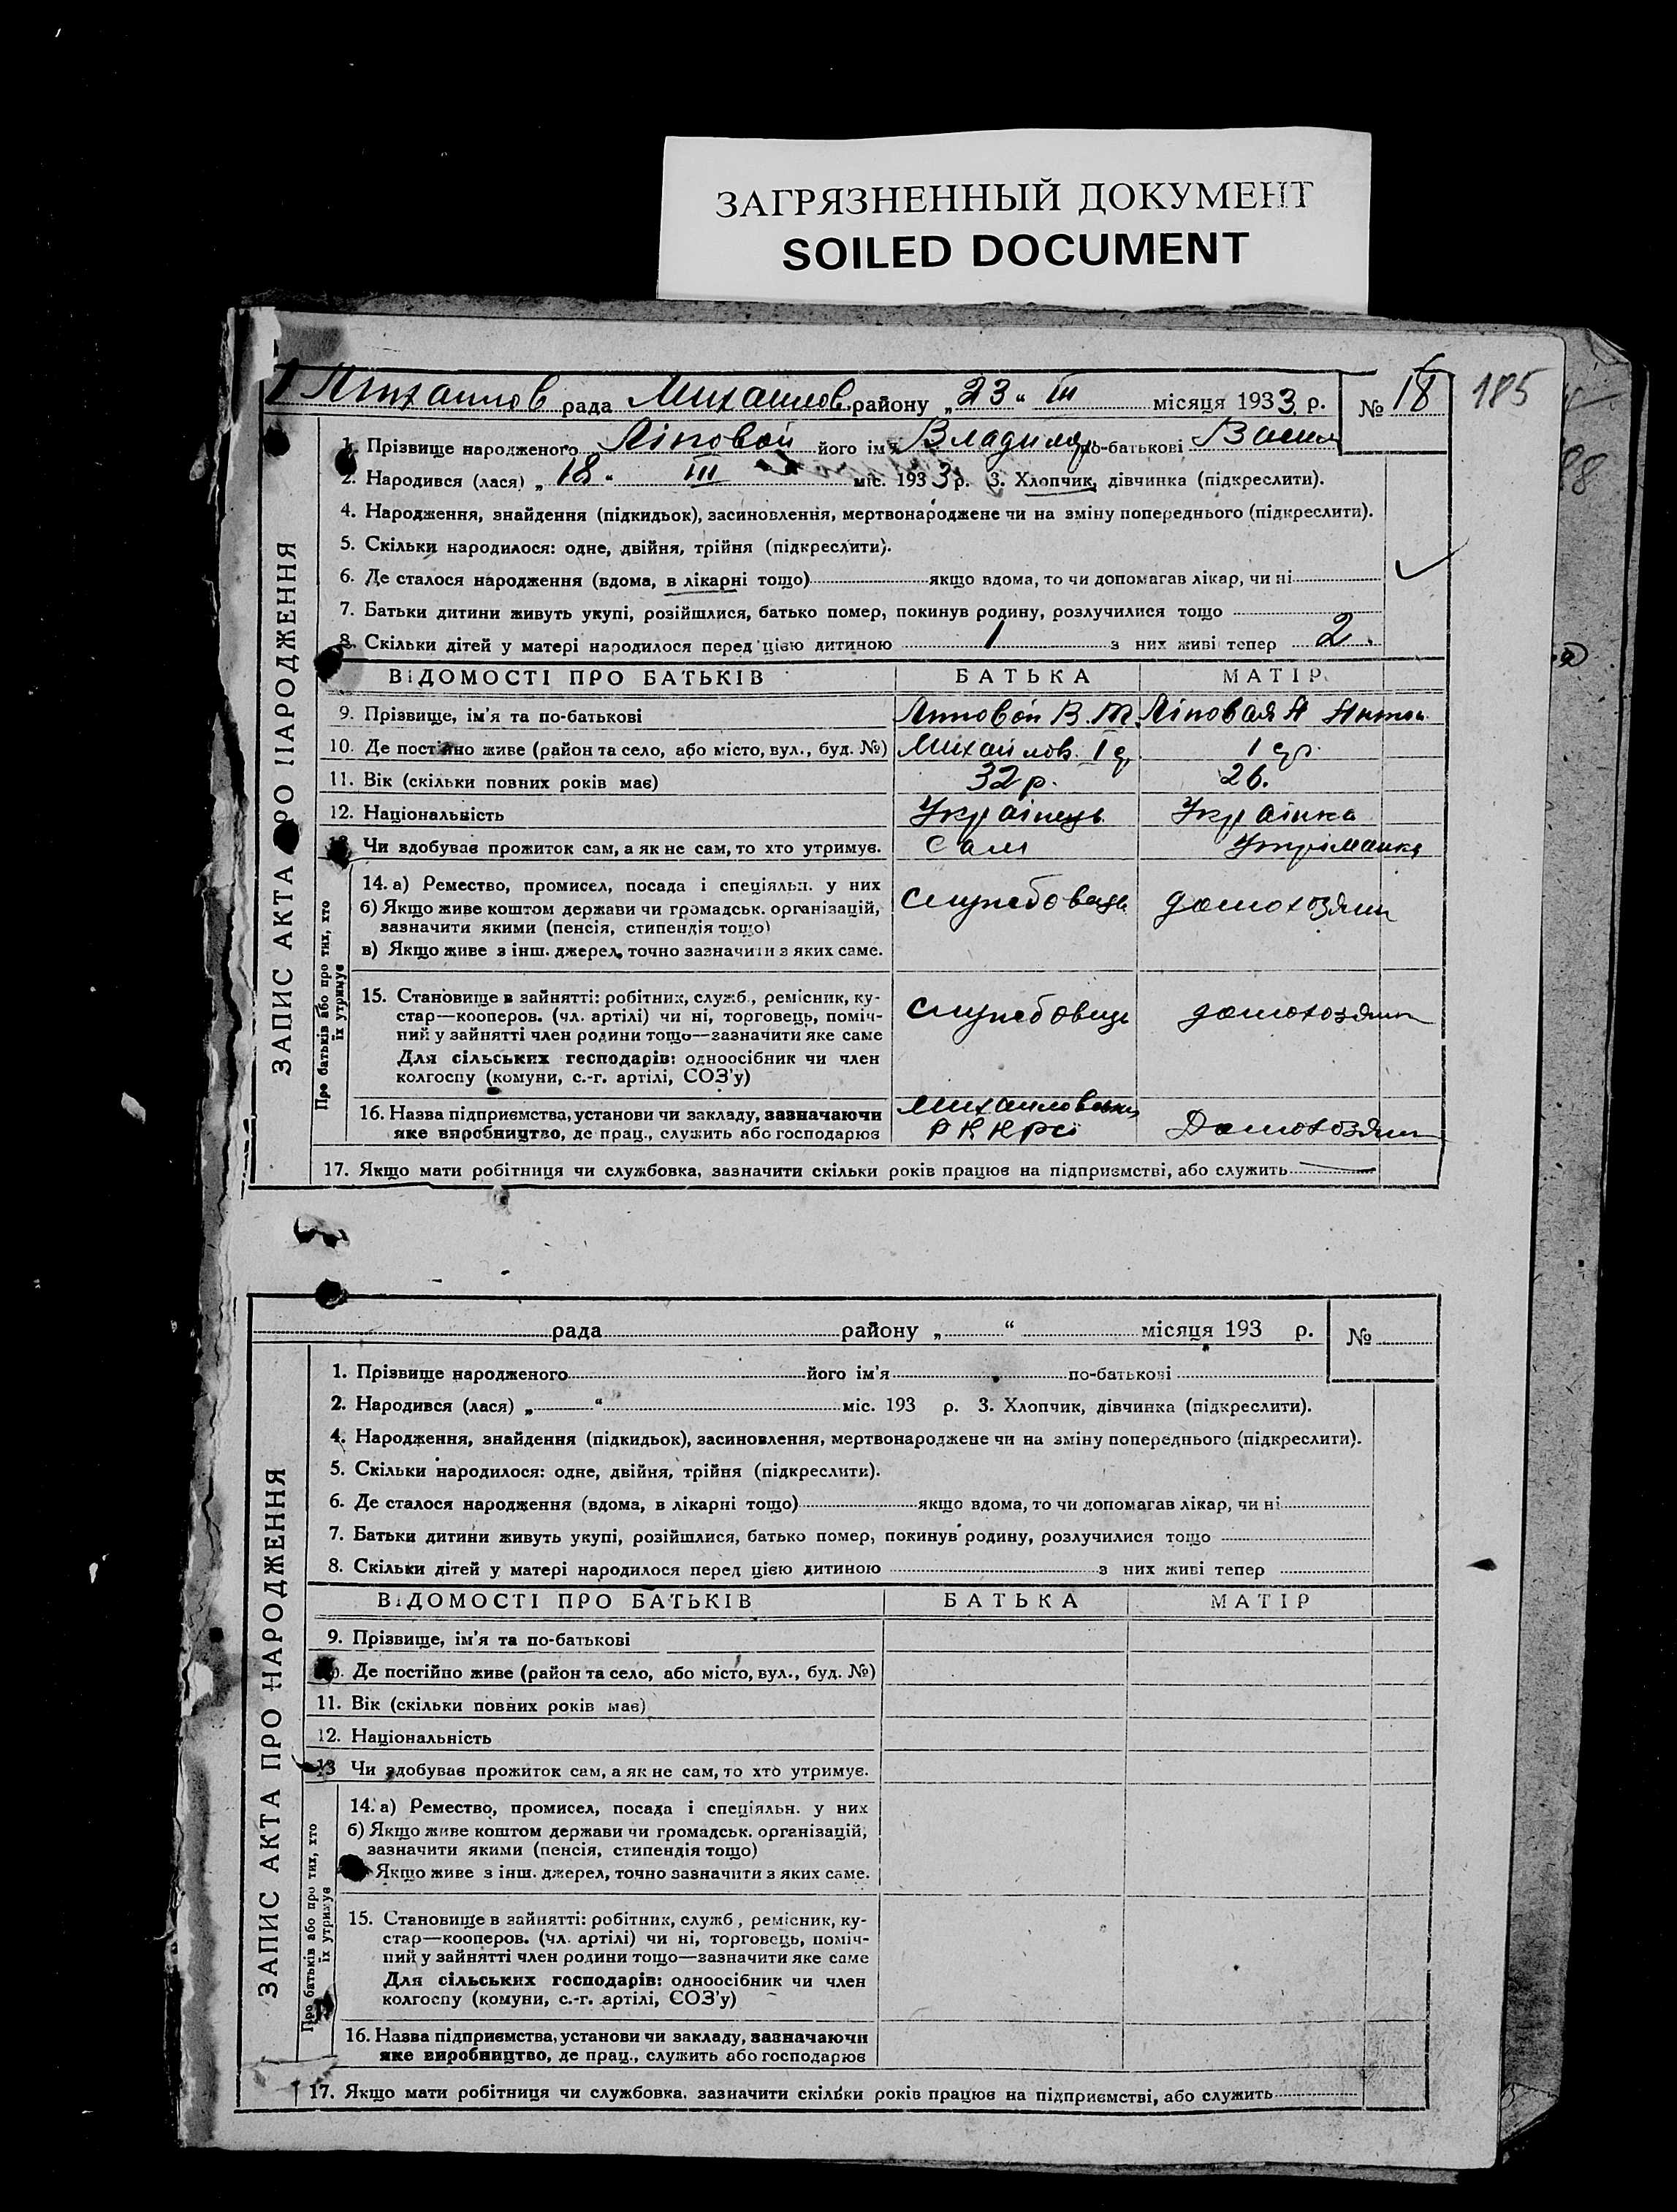 ЗАГРЯЗНЕННЫЙ ДОКУМЕНТ
SOILED DOCUMENT
Михайлов рада Михайлов. району „23“ III місяця 1933 р. № 18 185
1. Прізвище народженого Ліповой його ім'я Владимир по-батькові Васил
2. Народився (лася) „18“ III міс. 1933 р. 3. Хлопчик, дівчинка (підкреслити).
4. Народження, знайдення (підкидьок), засиновлення, мертвонароджене чи на зміну попереднього (підкреслити).
5. Скільки народилося: одне, двійня, трійня (підкреслити).
6. Де сталося народження (вдома, в лікарні тощо) якщо вдома, то чи допомагав лікар, чи ні
7. Батьки дитини живуть укупі, розійшлися, батько помер, покинув родину, розлучилися тощо
8. Скільки дітей у матері народилося перед цією дитиною 1 з них живі тепер 2
ЗАПИС АКТА ПРО НАРОДЖЕННЯ
ВІДОМОСТІ ПРО БАТЬКІВ БАТЬКА МАТІР
9. Прізвище, ім'я та по-батькові Липовой В. М. Ліповая А Антон.
10. Де постійно живе (район та село, або місто, вул., буд. №) Михайлов. 1 д. 1 др.
11. Вік (скільки повних років має) 32 р. 26.
12. Національність Українець Українка
13 Чи здобуває прожиток сам, а як не сам, то хто утримує. Сам Утриманка
Про батьків або про тих, хто
їх утримує
14. а) Ремество, промисел, посада і спеціяльн. у них
б) Якщо живе коштом держави чи громадськ. організацій, службовець домохозяйк
зазначити якими (пенсія, стипендія тощо)
в) Якщо живе з інш. джерел, точно зазначити з яких саме.
15. Становище в зайнятті: робітник, служб., ремісник, ку-
стар—кооперов. (чл. артілі) чи ні, торговець, поміч- службовець домохозяйк
ний у зайнятті член родини тощо—зазначити яке саме
Для сільських господарів: одноосібник чи член
колгоспу (комуни, с.-г. артілі, СОЗ'у)
16. Назва підприємства, установи чи закладу, зазначаючи Михайловськ
яке виробництво, де прац., служить або господарює Домохозяйк
17. Якщо мати робітниця чи службовка, зазначити скільки років працює на підприємстві, або служить
рада району „ “ місяця 193 р. №
1. Прізвище народженого його ім'я по-батькові
2. Народився (лася) „ “ міс. 193 р. 3. Хлопчик, дівчинка (підкреслити).
4. Народження, знайдення (підкидьок), засиновлення, мертвонароджене чи на зміну попереднього (підкреслити).
5. Скільки народилося: одне, двійня, трійня (підкреслити).
6. Де сталося народження (вдома, в лікарні тощо) якщо вдома, то чи допомагав лікар, чи ні
7. Батьки дитини живуть укупі, розійшлися, батько помер, покинув родину, розлучилися тощо
8. Скільки дітей у матері народилося перед цією дитиною з них живі тепер
ЗАПИС АКТА ПРО НАРОДЖЕННЯ
ВІДОМОСТІ ПРО БАТЬКІВ БАТЬКА МАТІР
9. Прізвище, ім'я та по-батькові
Де постійно живе (район та село, або місто, вул., буд. №)
11. Вік (скільки повних років має)
12. Національність
13 Чи здобуває прожиток сам, а як не сам, то хто утримує.
Про батьків або про тих, хто
їх утримує
14. а) Ремество, промисел, посада і спеціяльн. у них
б) Якщо живе коштом держави чи громадськ. організацій,
зазначити якими (пенсія, стипендія тощо)
Якщо живе з інш. джерел, точно зазначити з яких саме.
15. Становище в зайнятті: робітник, служб., ремісник, ку-
стар—кооперов. (чл. артілі) чи ні, торговець, поміч-
ний у зайнятті член родини тощо—зазначити яке саме
Для сільських господарів: одноосібник чи член
колгоспу (комуни, с.-г. артілі, СОЗ'у)
16. Назва підприємства, установи чи закладу, зазначаючи
яке виробництво, де прац., служить або господарює
17. Якщо мати робітниця чи службовка, зазначити скільки років працює на підприємстві, або служить